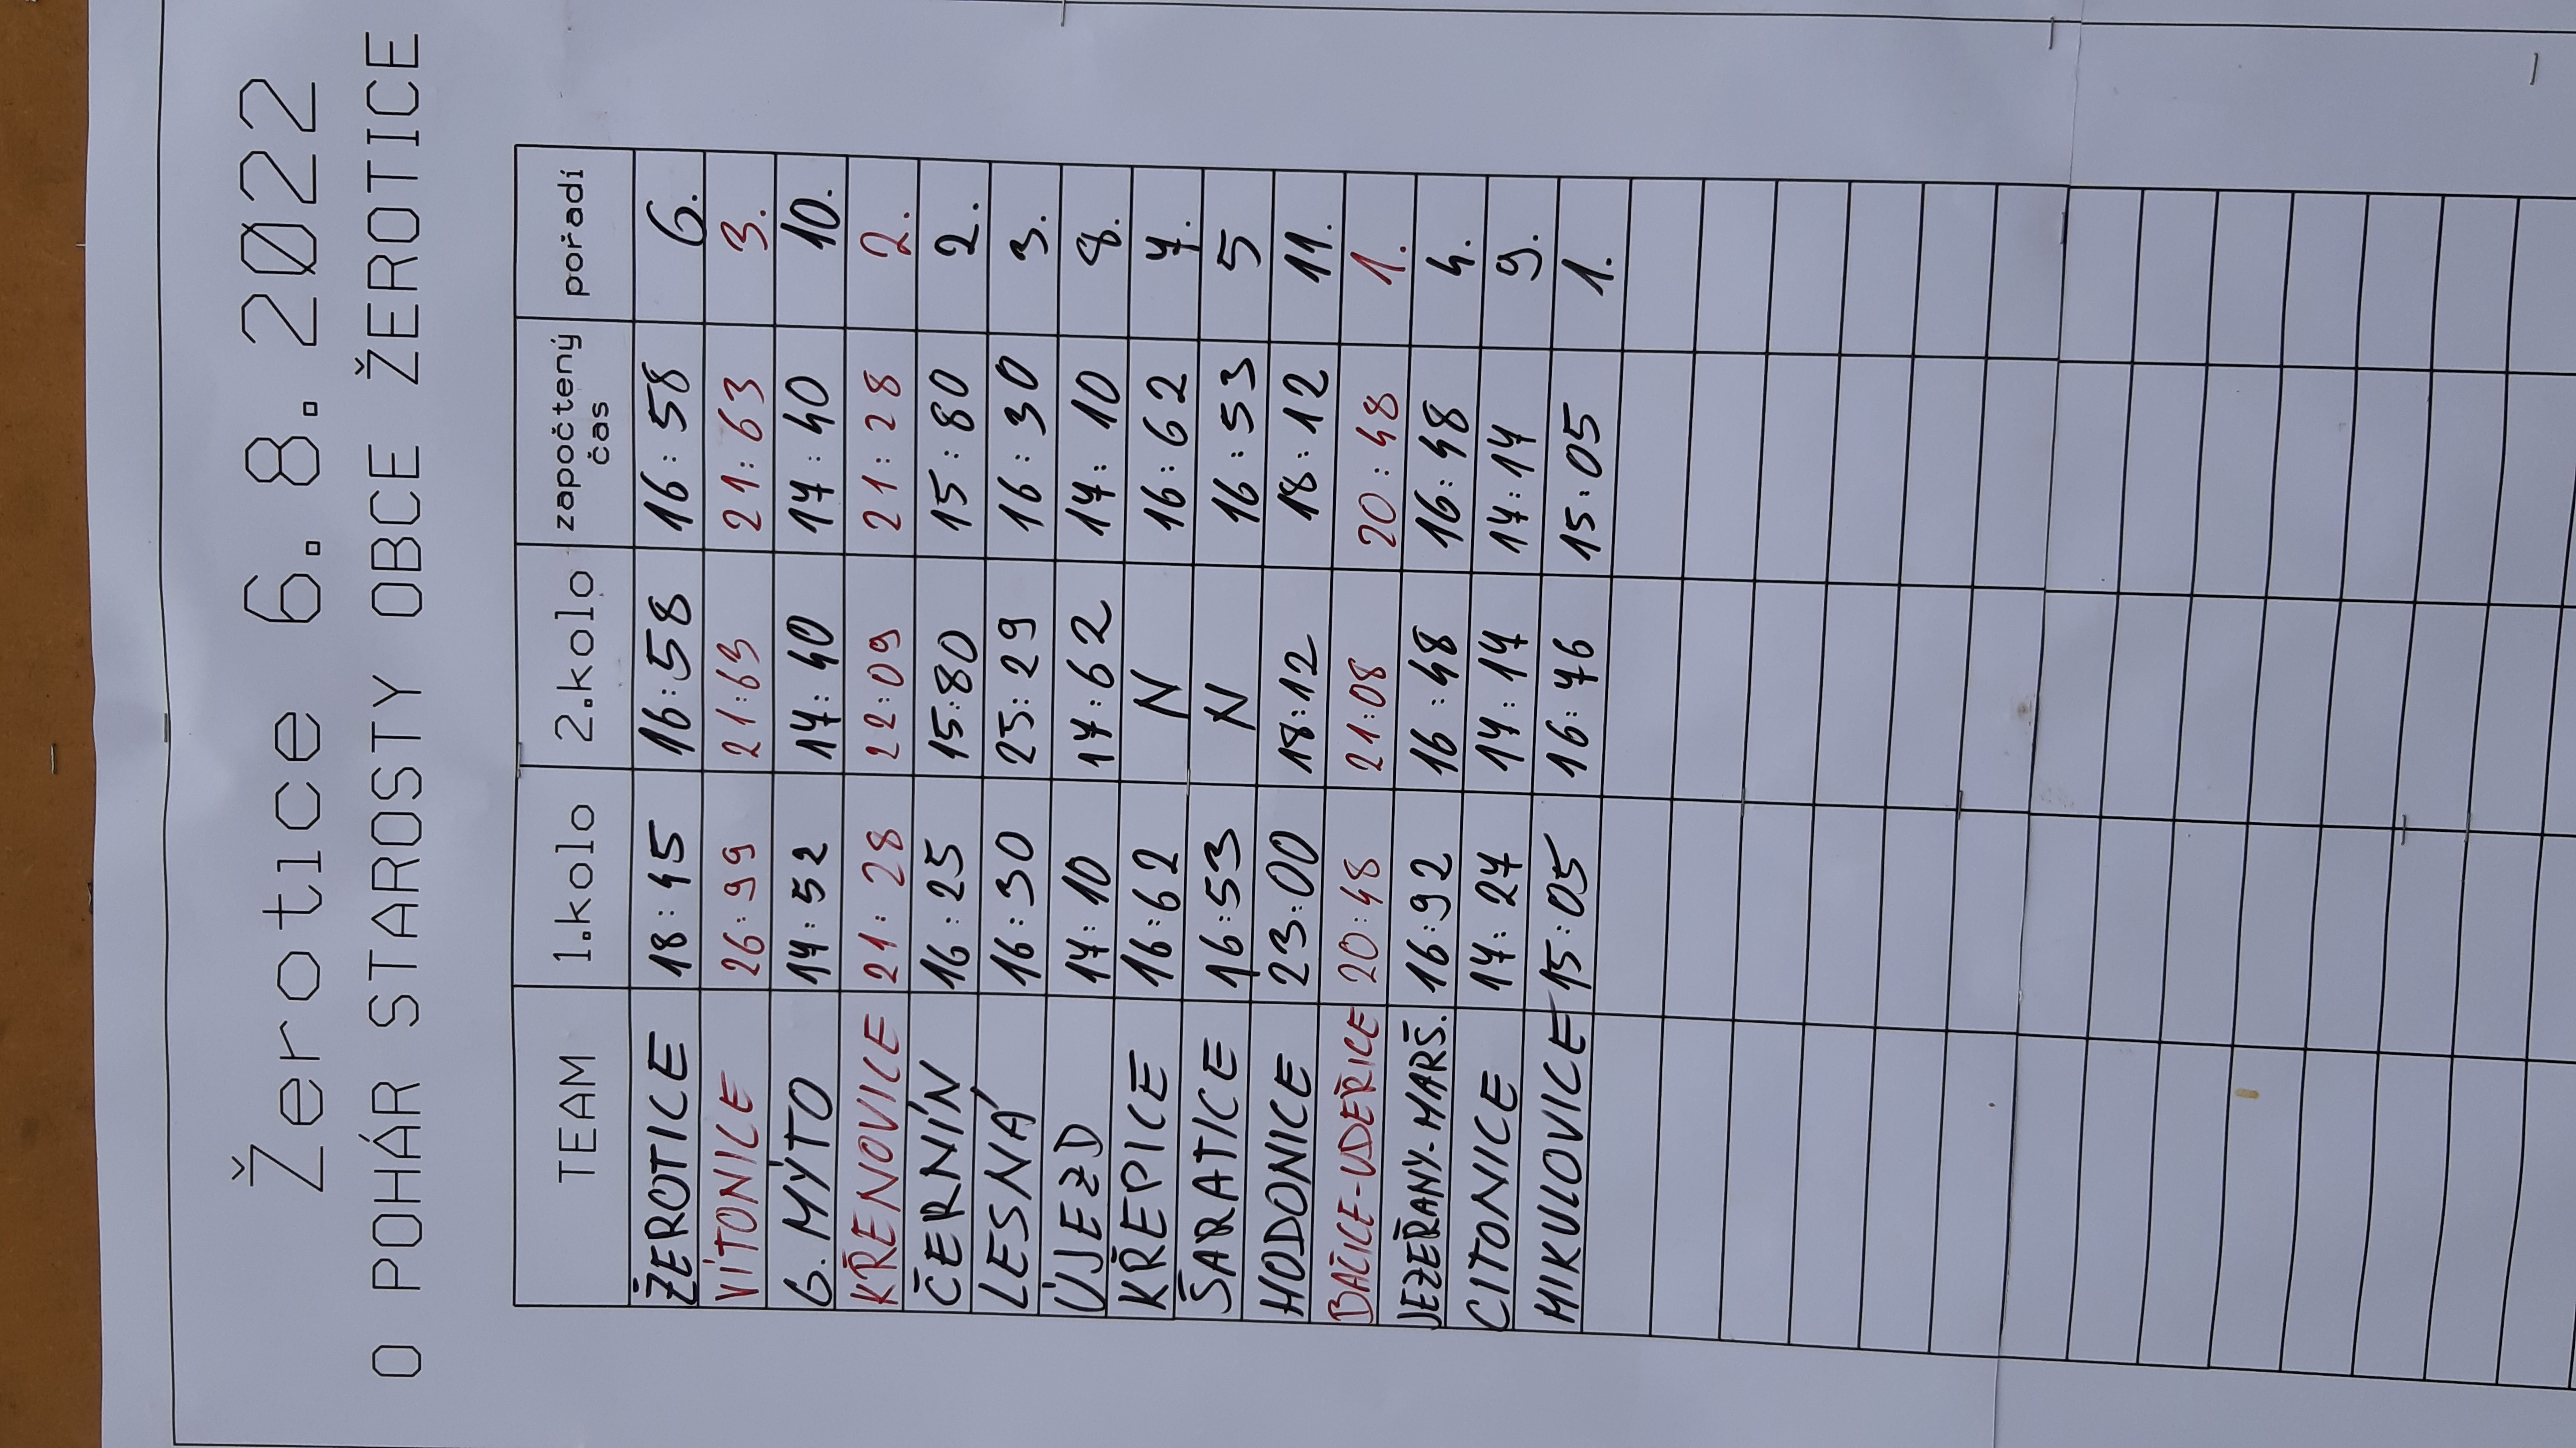 Žerotice 6. 8. 2022
O POHÁR STAROSTY OBCE ŽEROTICE
TEAM 1.kolo 2.kolo započtený čas pořadí
ŽEROTICE 18:45 16:58 16:58 6.
VÍTONICE 26:99 21:63 21:63 3.
G. MÝTO 17:52 17:40 17:40 10.
KŘENOVICE 21:28 22:09 21:28 2.
ČERNÍN 16:25 15:80 15:80 2.
LESNÁ 16:30 25:29 16:30 3.
ÚJEZD 17:10 17:62 17:10 8.
KŘEPICE 16:62 N 16:62 7.
ŠARATICE 16:53 N 16:53 5
HODONICE 23:00 18:12 18:12 11.
BAČICE-UDEŘICE 20:48 21:08 20:48 1.
JEZEŘANY-MARŠ. 16:92 16:48 16:48 4.
CITONICE 17:27 17:17 17:17 9.
MIKULOVICE 15:05 16:76 15:05 1.